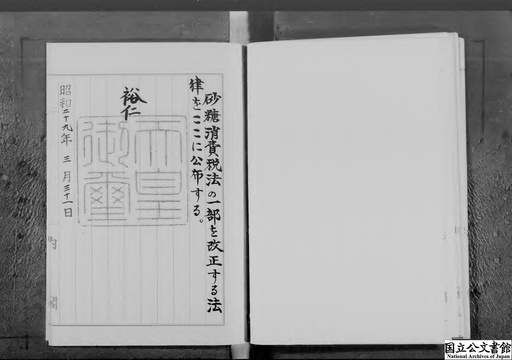 砂糖消費税法の一部を改正する法
律をここに公布する。
裕仁
天皇
御璽
昭和二十九年三月三十一日
内閣
国立公文書館
National Archives of Japan